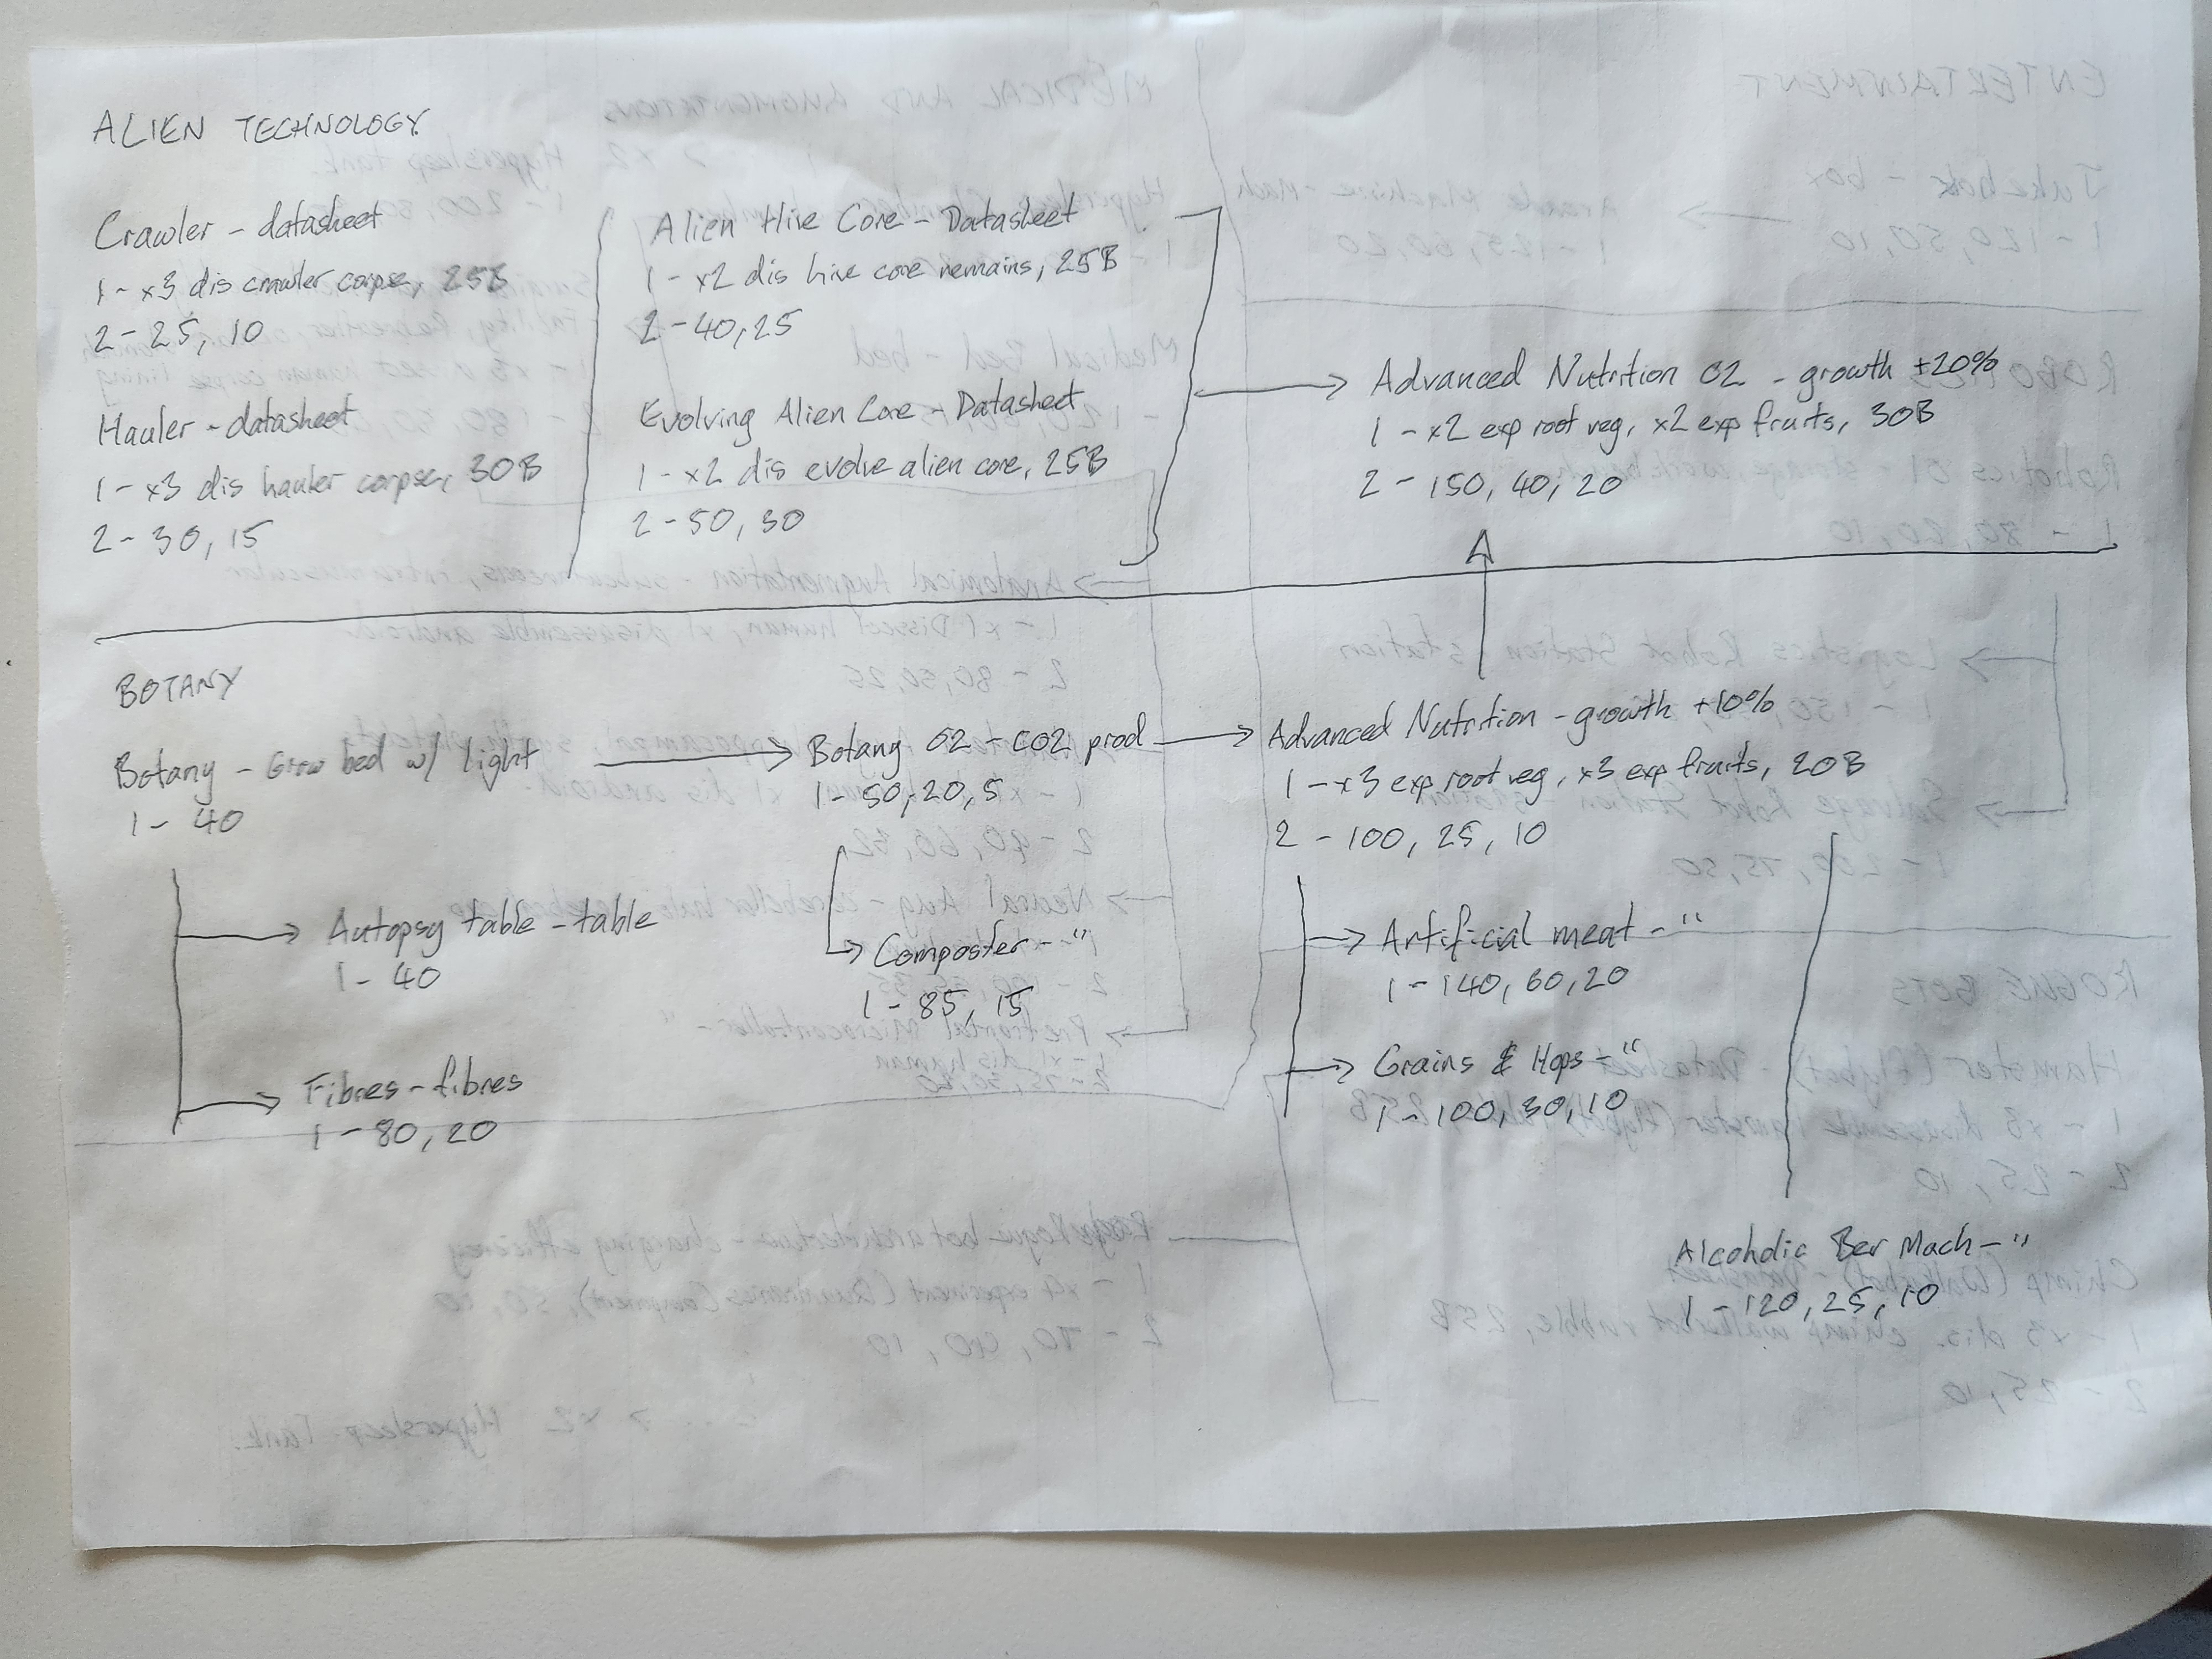 ALIEN TECHNOLOGY
Crawler - datasheet
1 - x3 dis crawler corpse, 25B
2 - 25, 10
Hauler - datasheet
1 - x3 dis hauler corpse, 30B
2 - 30, 15
Alien Hive Core - Datasheet
1 - x2 dis hive core remains, 25B
2 - 40, 25
Evolving Alien Core - Datasheet
1 - x2 dis evolve alien core, 25B
2 - 50, 30
Advanced Nutrition 02 - growth +20%
1 - x2 exp root veg, x2 exp fruits, 30B
2 - 150, 40, 20
BOTANY
Botany - Grow bed w/ light
1 - 40
Autopsy table - table
1 - 40
Fibres - fibres
1 - 80, 20
Botany 02 - CO2 prod
1 - 50, 20, 5
Composter - "
1 - 85, 15
Advanced Nutrition - growth +10%
1 - x3 exp root veg, x3 exp fruits, 20B
2 - 100, 25, 10
Artificial meat - "
1 - 140, 60, 20
Grains & Hops - "
1 - 100, 30, 10
Alcoholic Ber Mach - "
1 - 120, 25, 10